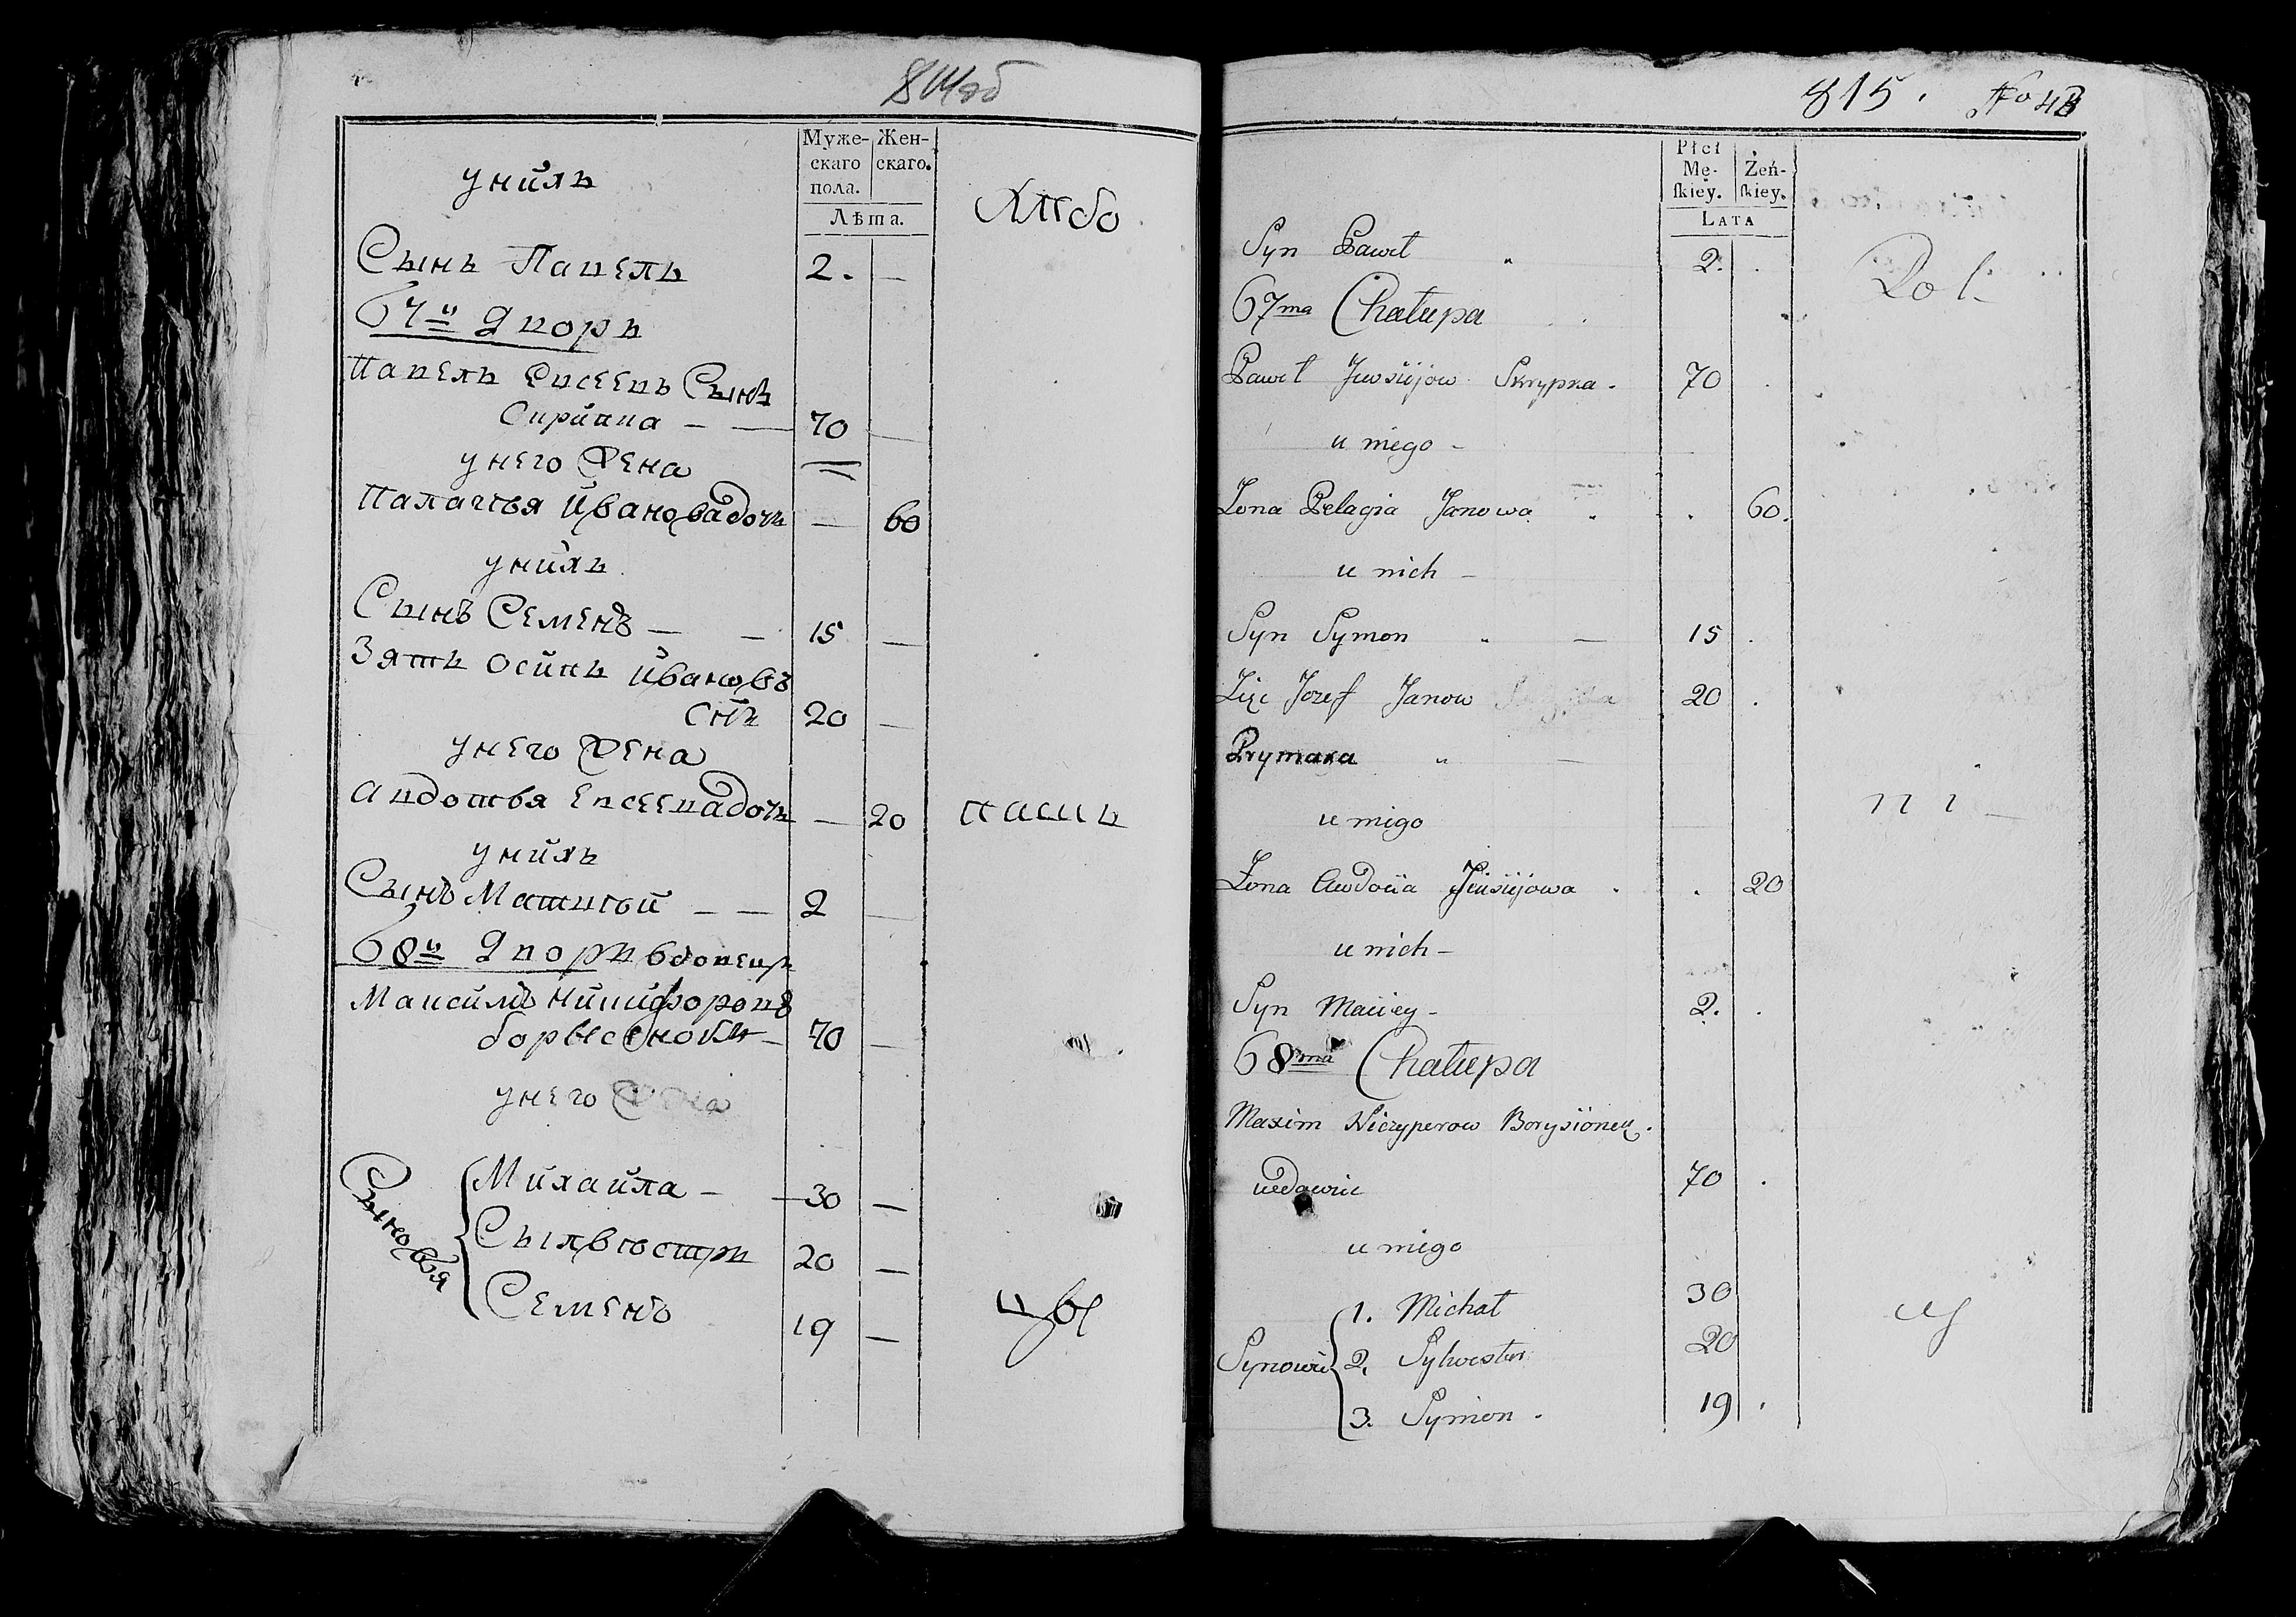 814об
Муже-
скаго
пола.
Жен-
скаго.
Лѣта.
унихъ
Хлѣбо
Сынъ Павелъ 2. —
67й Дворъ
Павелъ Евсеевъ Сынъ
Скрипка — — 70 —
унего Жена
Палагѣя Ивановадочь — 60
унихъ
Сынъ Семенъ — — 15 —
Зять Осипъ Ивановъ
Снъ 20 —
унего Жена
Авдотья Евсеевадочь — 20 пашъ
унихъ
Сынъ Матвѣй — — 2 —
68й Дворъ вдовецъ
Максимъ Никифоровъ
борысенокъ — 70 —
унего
Сыновья
Михайла — 30 —
Сылвѣстръ 20 —
Семенъ 19 —
цы
815. No 43
Płci
Mę-
skiey.
Żeń-
skiey.
LATA
Syn Paweł 2. .
Rol-
67ma Chałupa
Paweł Jewsiejow Skrypka. 70 .
u niego —
Żona Pelagia Janowa . 60.
u nich —
Syn Symon — 15 .
Zięć Jozef Janow 20 .
Prymaka —
u niego
ni —
Żona Awdocia Jewsiejowa . . 20
u nich —
Syn Maciey — 2. .
68ma Chałupa
Maxim Niczyperow Borysionek.
wdowiec 70 .
u niego
Synowie
1. Michał 30
2. Sylwester 20
3. Symon . 19 .
cy